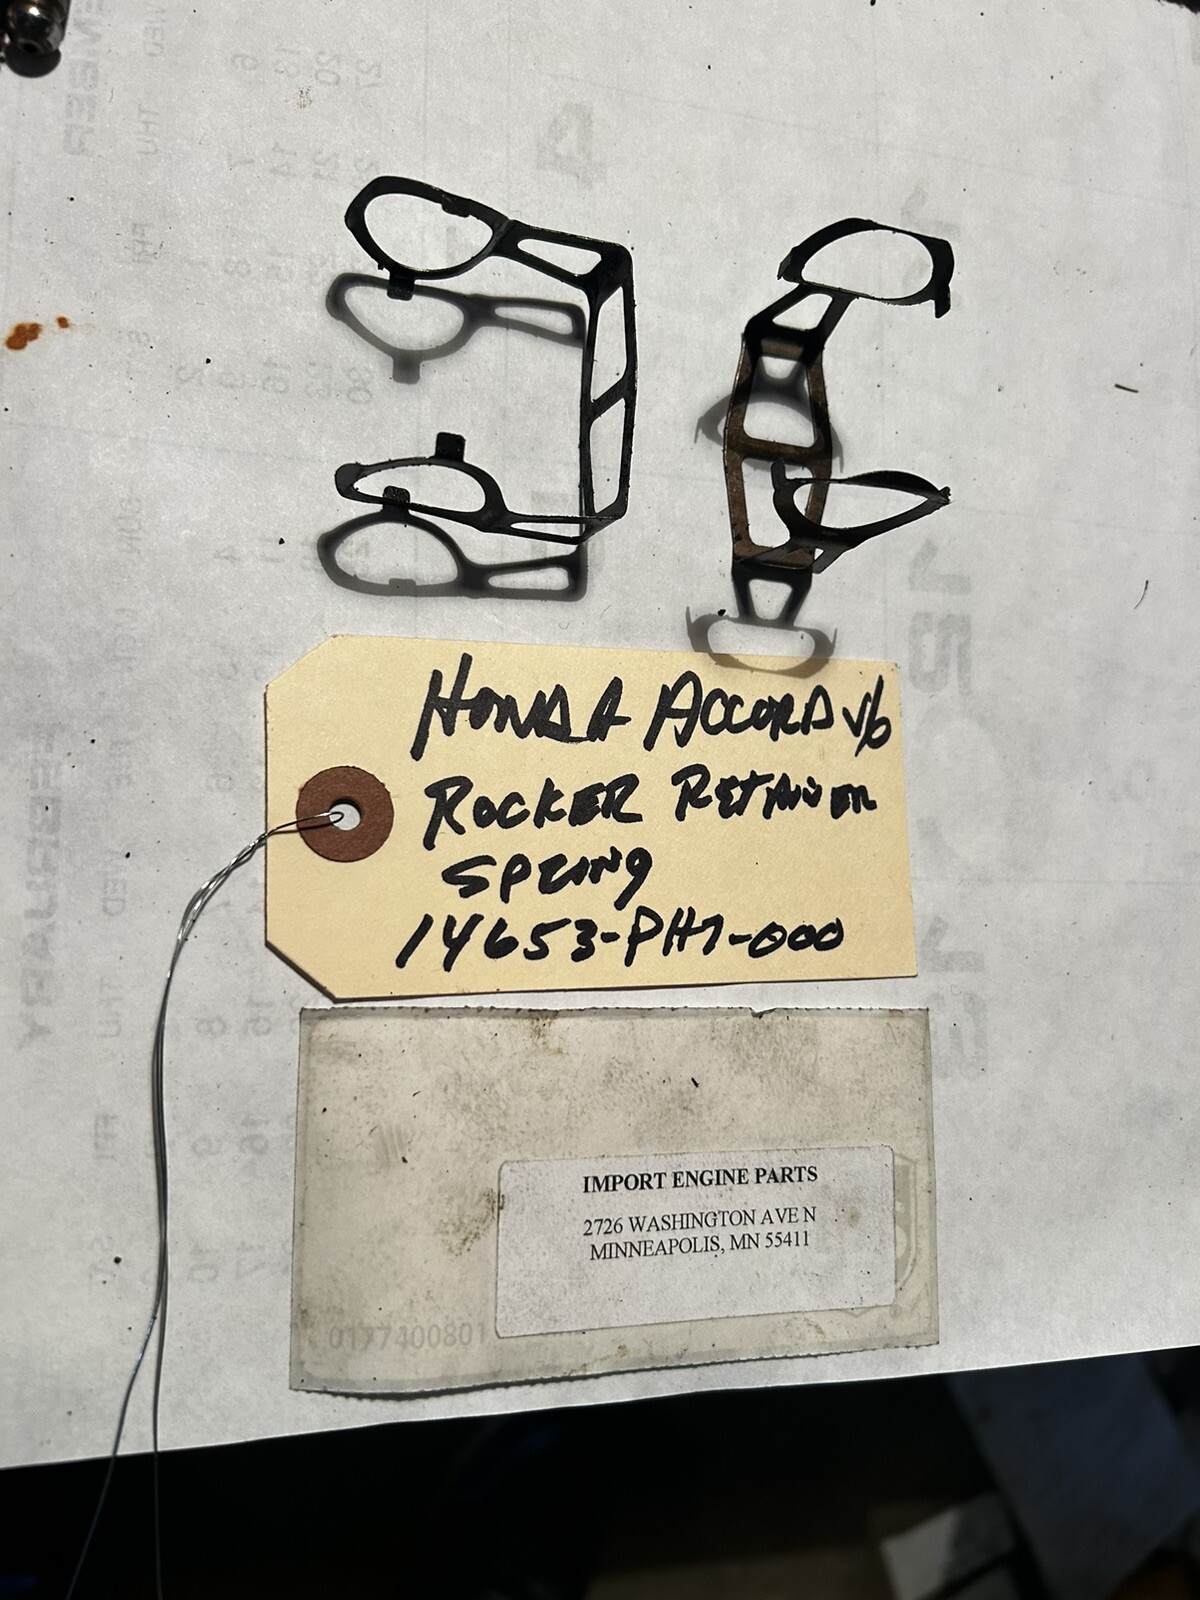 HONDA ACCORD V6
ROCKER RETAINER
SPRING
14653-PH7-000
IMPORT ENGINE PARTS
2726 WASHINGTON AVE N
MINNEAPOLIS, MN 55411
0177400801